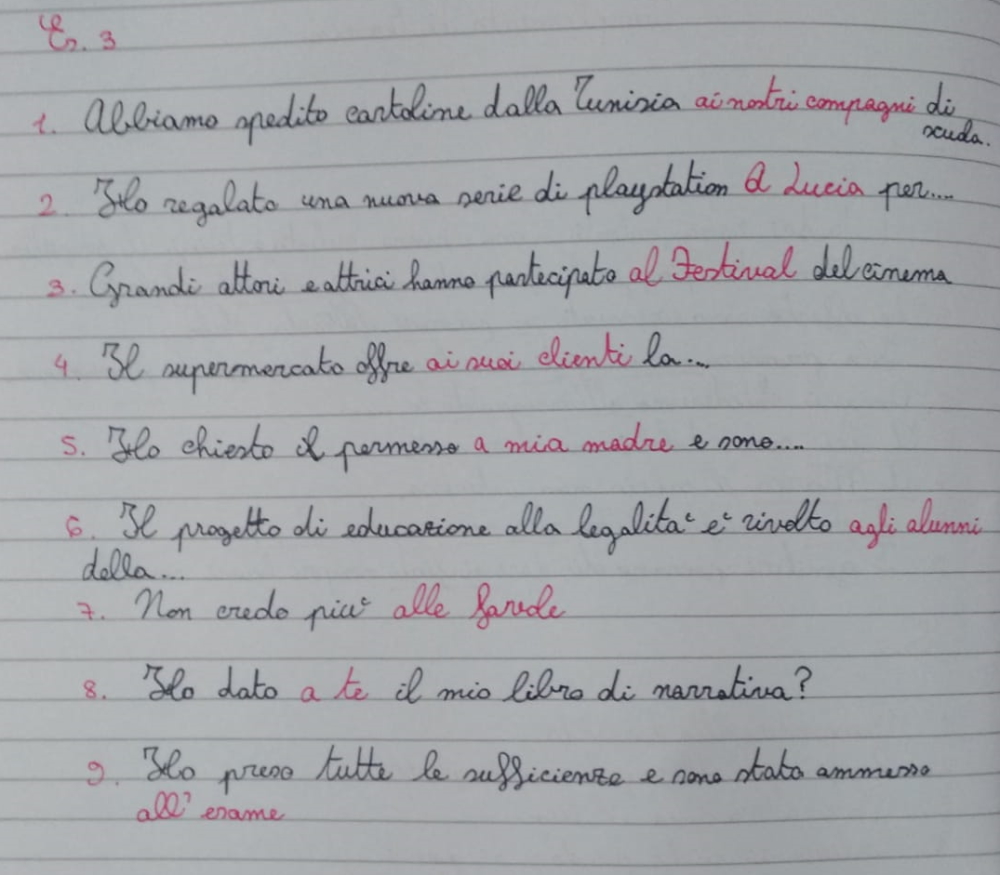 Es. 3
1. Abbiamo spedito cartoline dalla Tunisia ai nostri compagni di
scuola.
2. Ho regalato una nuova serie di playstation a Lucia per....
3. Grandi attori e attrici hanno partecipato al Festival del cinema
4. Il supermercato offre ai suoi clienti la...
5. Ho chiesto il permesso a mia madre e sono....
6. Il progetto di educazione alla legalità è rivolto agli alunni
della...
7. Non credo più alle favole
8. Ho dato a te il mio libro di narrativa?
9. Ho preso tutte le sufficienze e sono stato ammesso
all' esame